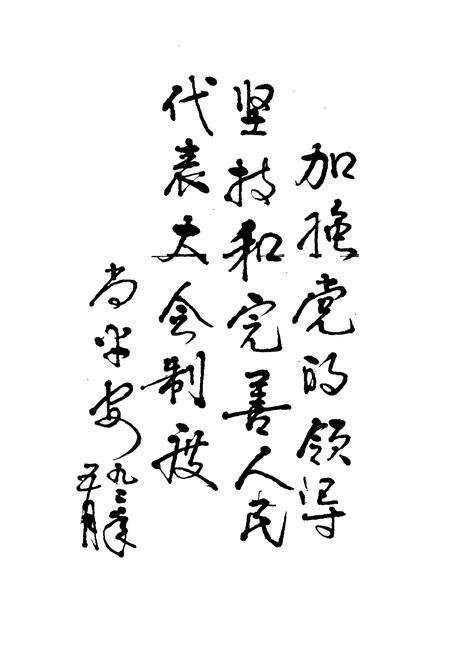 加强党的领导
坚持和完善人民
代表大会制度
尚半安
九二年
五月